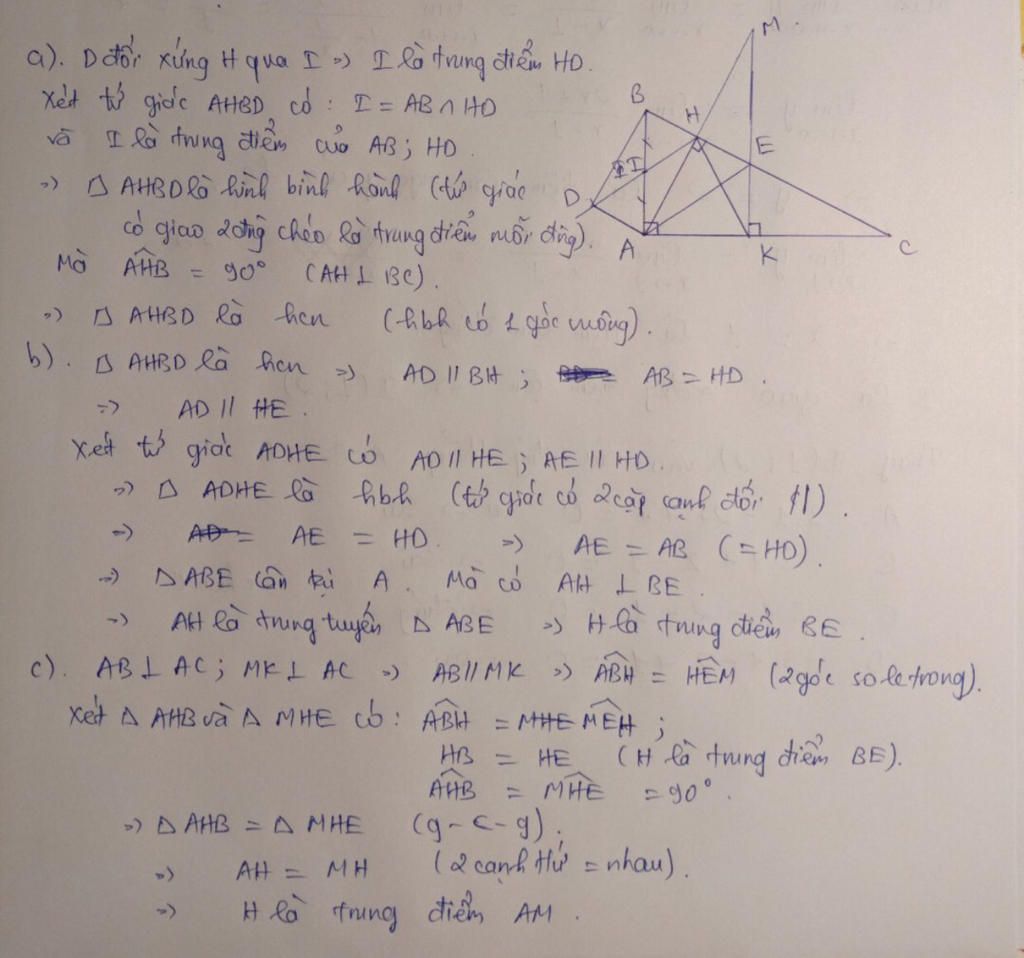 a). D đối xứng H qua I => I là trung điểm HD.
Xét tứ giác AHBD có : I = AB ∩ HD
và I là trung điểm của AB ; HD .
=> ▱ AHBD là hình bình hành (tứ giác
có giao 2 đg chéo là trung điểm mỗi đg).
Mà AHB = 90° (AH ⊥ BC).
=> ▱ AHBD là hcn (hbh có 1 góc vuông).
b). ▱ AHBD là hcn => AD // BH ; AB = HD .
=> AD // HE .
Xét tứ giác ADHE có AD // HE ; AE // HD.
=> ▱ ADHE là hbh (tứ giác có 2 cặp cạnh đối //) .
=> AD = AE = HD. => AE = AB (= HD).
=> △ ABE cân tại A . Mà có AH ⊥ BE .
=> AH là trung tuyến △ ABE => H là trung điểm BE .
c). AB ⊥ AC ; MK ⊥ AC => AB // MK => ABH = HEM (2 góc so le trong).
Xét △ AHB và △ MHE có : ABH = MHE MEH ;
HB = HE (H là trung điểm BE).
AHB = MHE = 90° .
=> △ AHB = △ MHE (g - c - g) ;
=> AH = MH (2 cạnh tứ = nhau) .
=> H là trung điểm AM .
M
B
H
E
I I
D
A
K
C